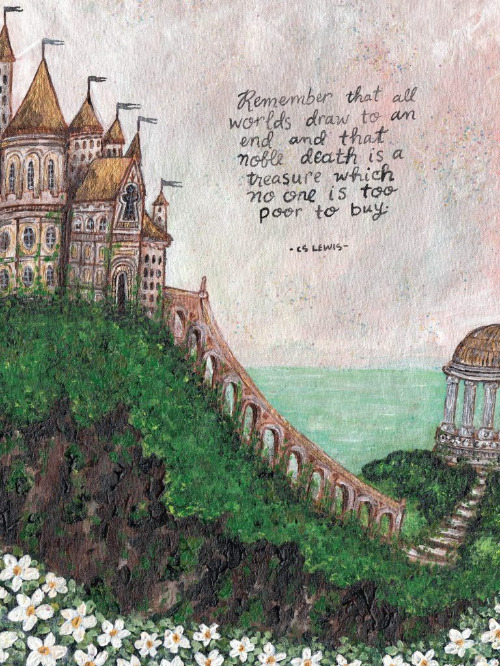 Remember that all
worlds draw to an
end and that
noble death is a
treasure which
no one is too
poor to buy.
-CS LEWIS-